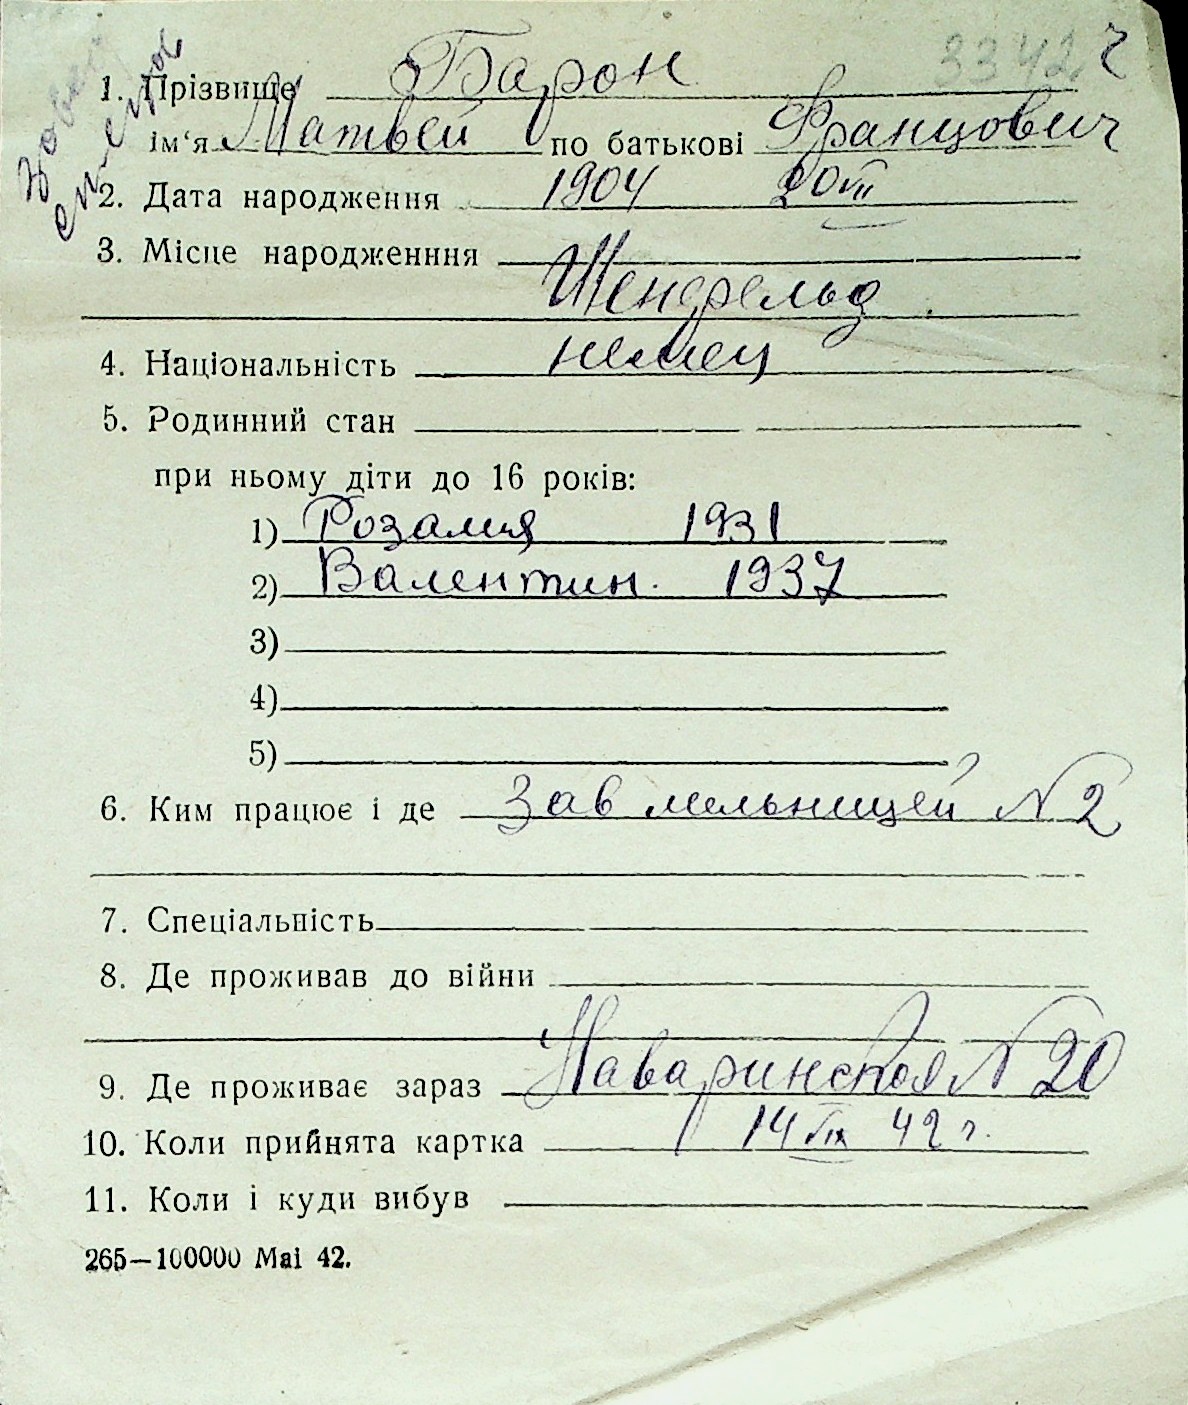 3342 ч
1. Прізвище Барон
ім'я Матвей по батькові Францович
2. Дата народження 1904 20 VII
3. Місце народженння
Шенфельд
4. Національність немец
5. Родинний стан
при ньому діти до 16 років:
1) Розалия 1931
2) Валентин. 1937
3)
4)
5)
6. Ким працює і де Зав мельницей N 2
7. Спеціальність
8. Де проживав до війни
9. Де проживає зараз Наваринская N 20
10. Коли прийнята картка 14 VIII 42 г.
11. Коли і куди вибув
265—100000 Mai 42.